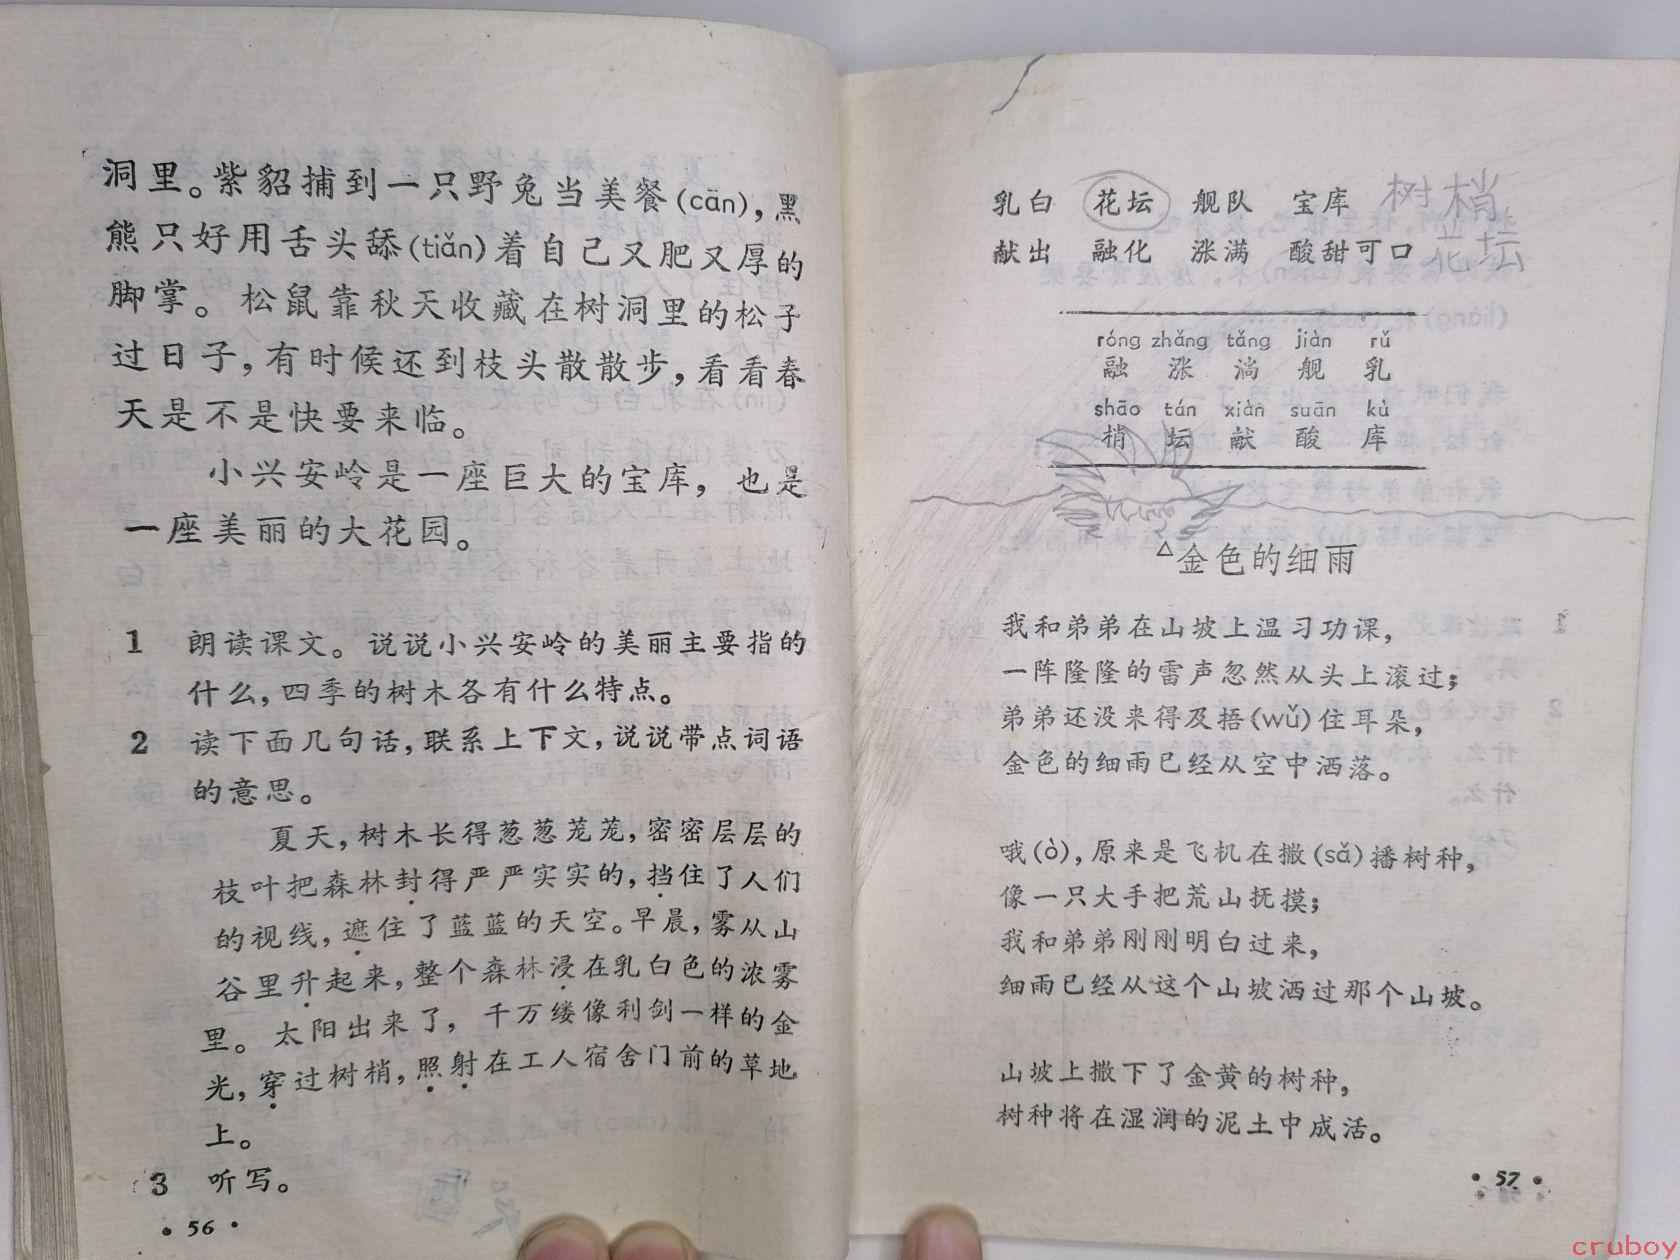 洞里。紫貂捕到一只野兔当美餐(cān)，黑
熊只好用舌头舔(tiǎn)着自己又肥又厚的
脚掌。松鼠靠秋天收藏在树洞里的松子
过日子，有时候还到枝头散散步，看看春
天是不是快要来临。
小兴安岭是一座巨大的宝库，也是
一座美丽的大花园。
1 朗读课文。说说小兴安岭的美丽主要指的
什么，四季的树木各有什么特点。
2 读下面几句话，联系上下文，说说带点词语
的意思。
夏天，树木长得葱葱茏茏，密密层层的
枝叶把森林封得严严实实的，挡住了人们
的视线，遮住了蓝蓝的天空。早晨，雾从山
谷里升起来，整个森林浸在乳白色的浓雾
里。太阳出来了，千万缕像利剑一样的金
光，穿过树梢，照射在工人宿舍门前的草地
上。
3 听写。
• 56 •
乳白 花坛 舰队 宝库 树梢
献出 融化 涨满 酸甜可口 花坛
róng zhǎng tǎng jiàn rǔ
融 涨 淌 舰 乳
shāo tán xiàn suān kù
梢 坛 献 酸 库
△金色的细雨
我和弟弟在山坡上温习功课，
一阵隆隆的雷声忽然从头上滚过；
弟弟还没来得及捂(wǔ)住耳朵，
金色的细雨已经从空中洒落。
哦(ò)，原来是飞机在撒(sǎ)播树种，
像一只大手把荒山抚摸；
我和弟弟刚刚明白过来，
细雨已经从这个山坡洒过那个山坡。
山坡上撒下了金黄的树种，
树种将在湿润的泥土中成活。
• 57 •
cruboy